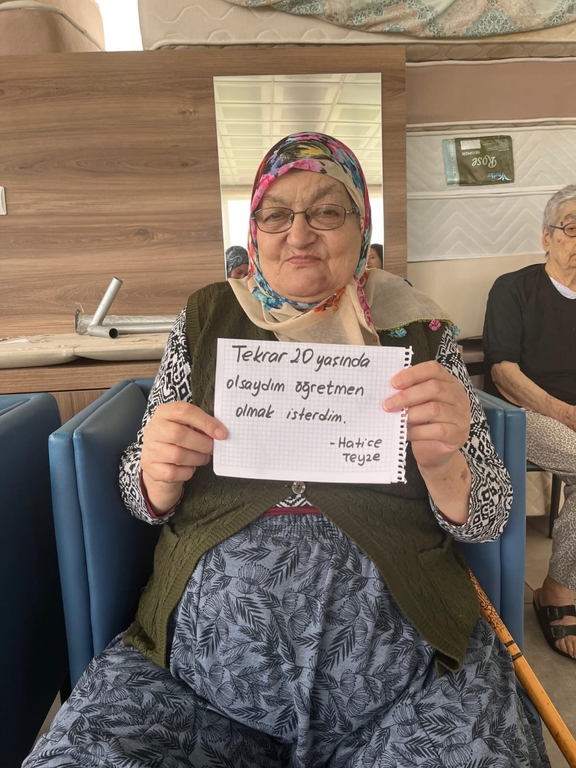 Tekrar 20 yaşında
olsaydım öğretmen
olmak isterdim.
-Hatice
Teyze
Rose